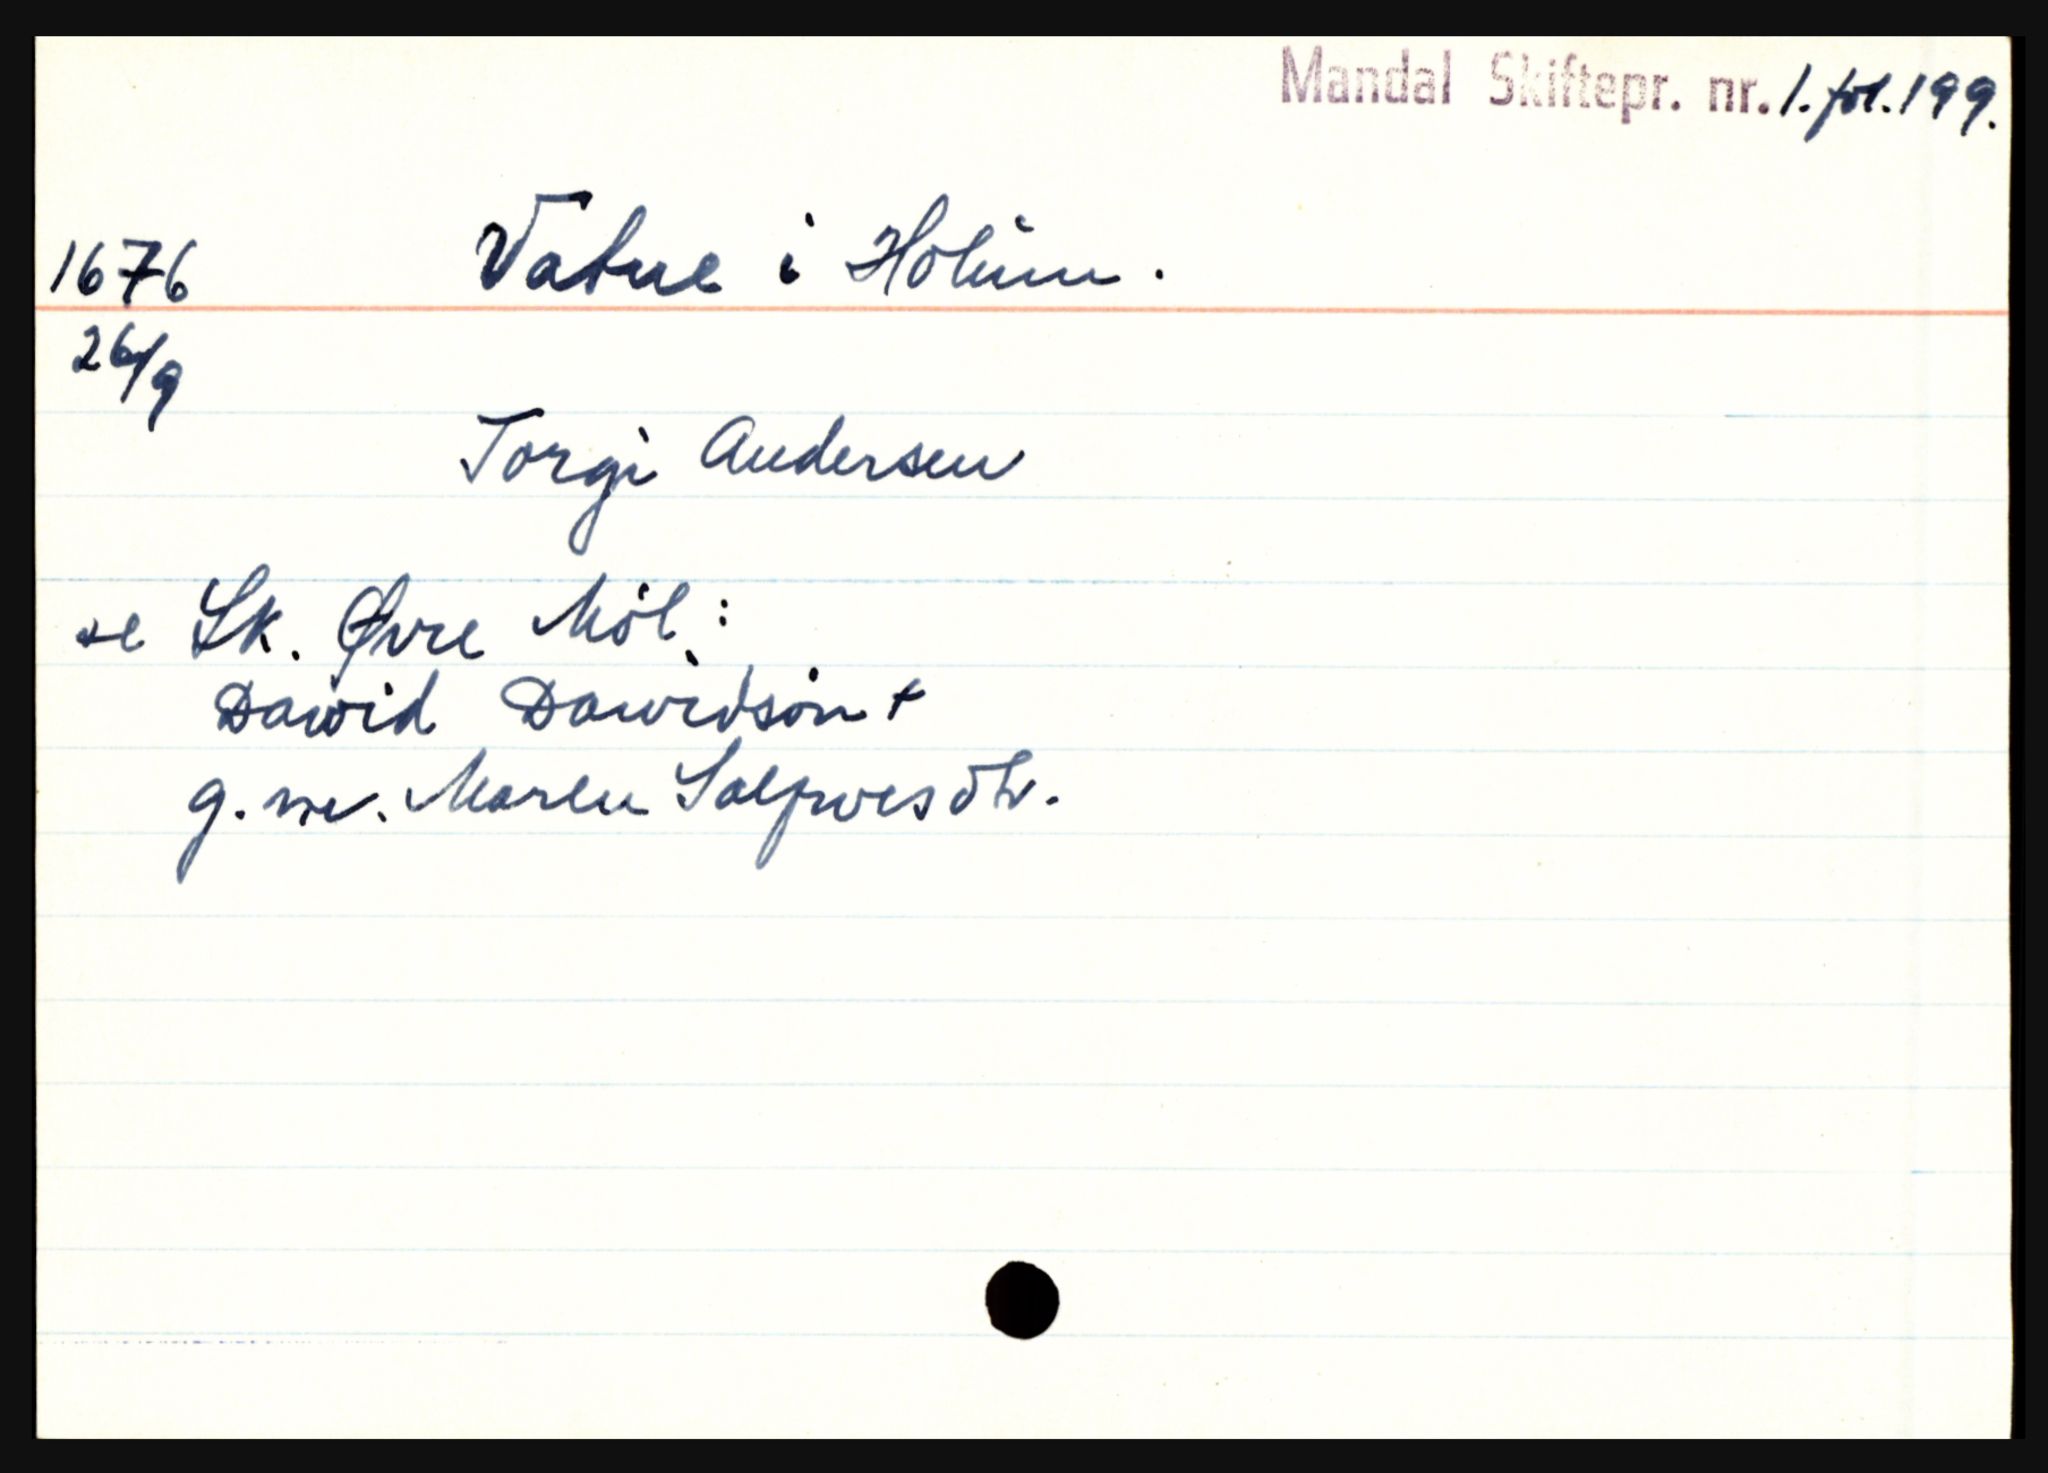 Mandal Skiftepr. nr. 1. fol. 199.
1676 Vatne i Holum.
26/9
Torgi Andersen
se Sk. Øvre Møl:
Dawid Dawidsøn +
g. m. Maren Salpvesdtr.